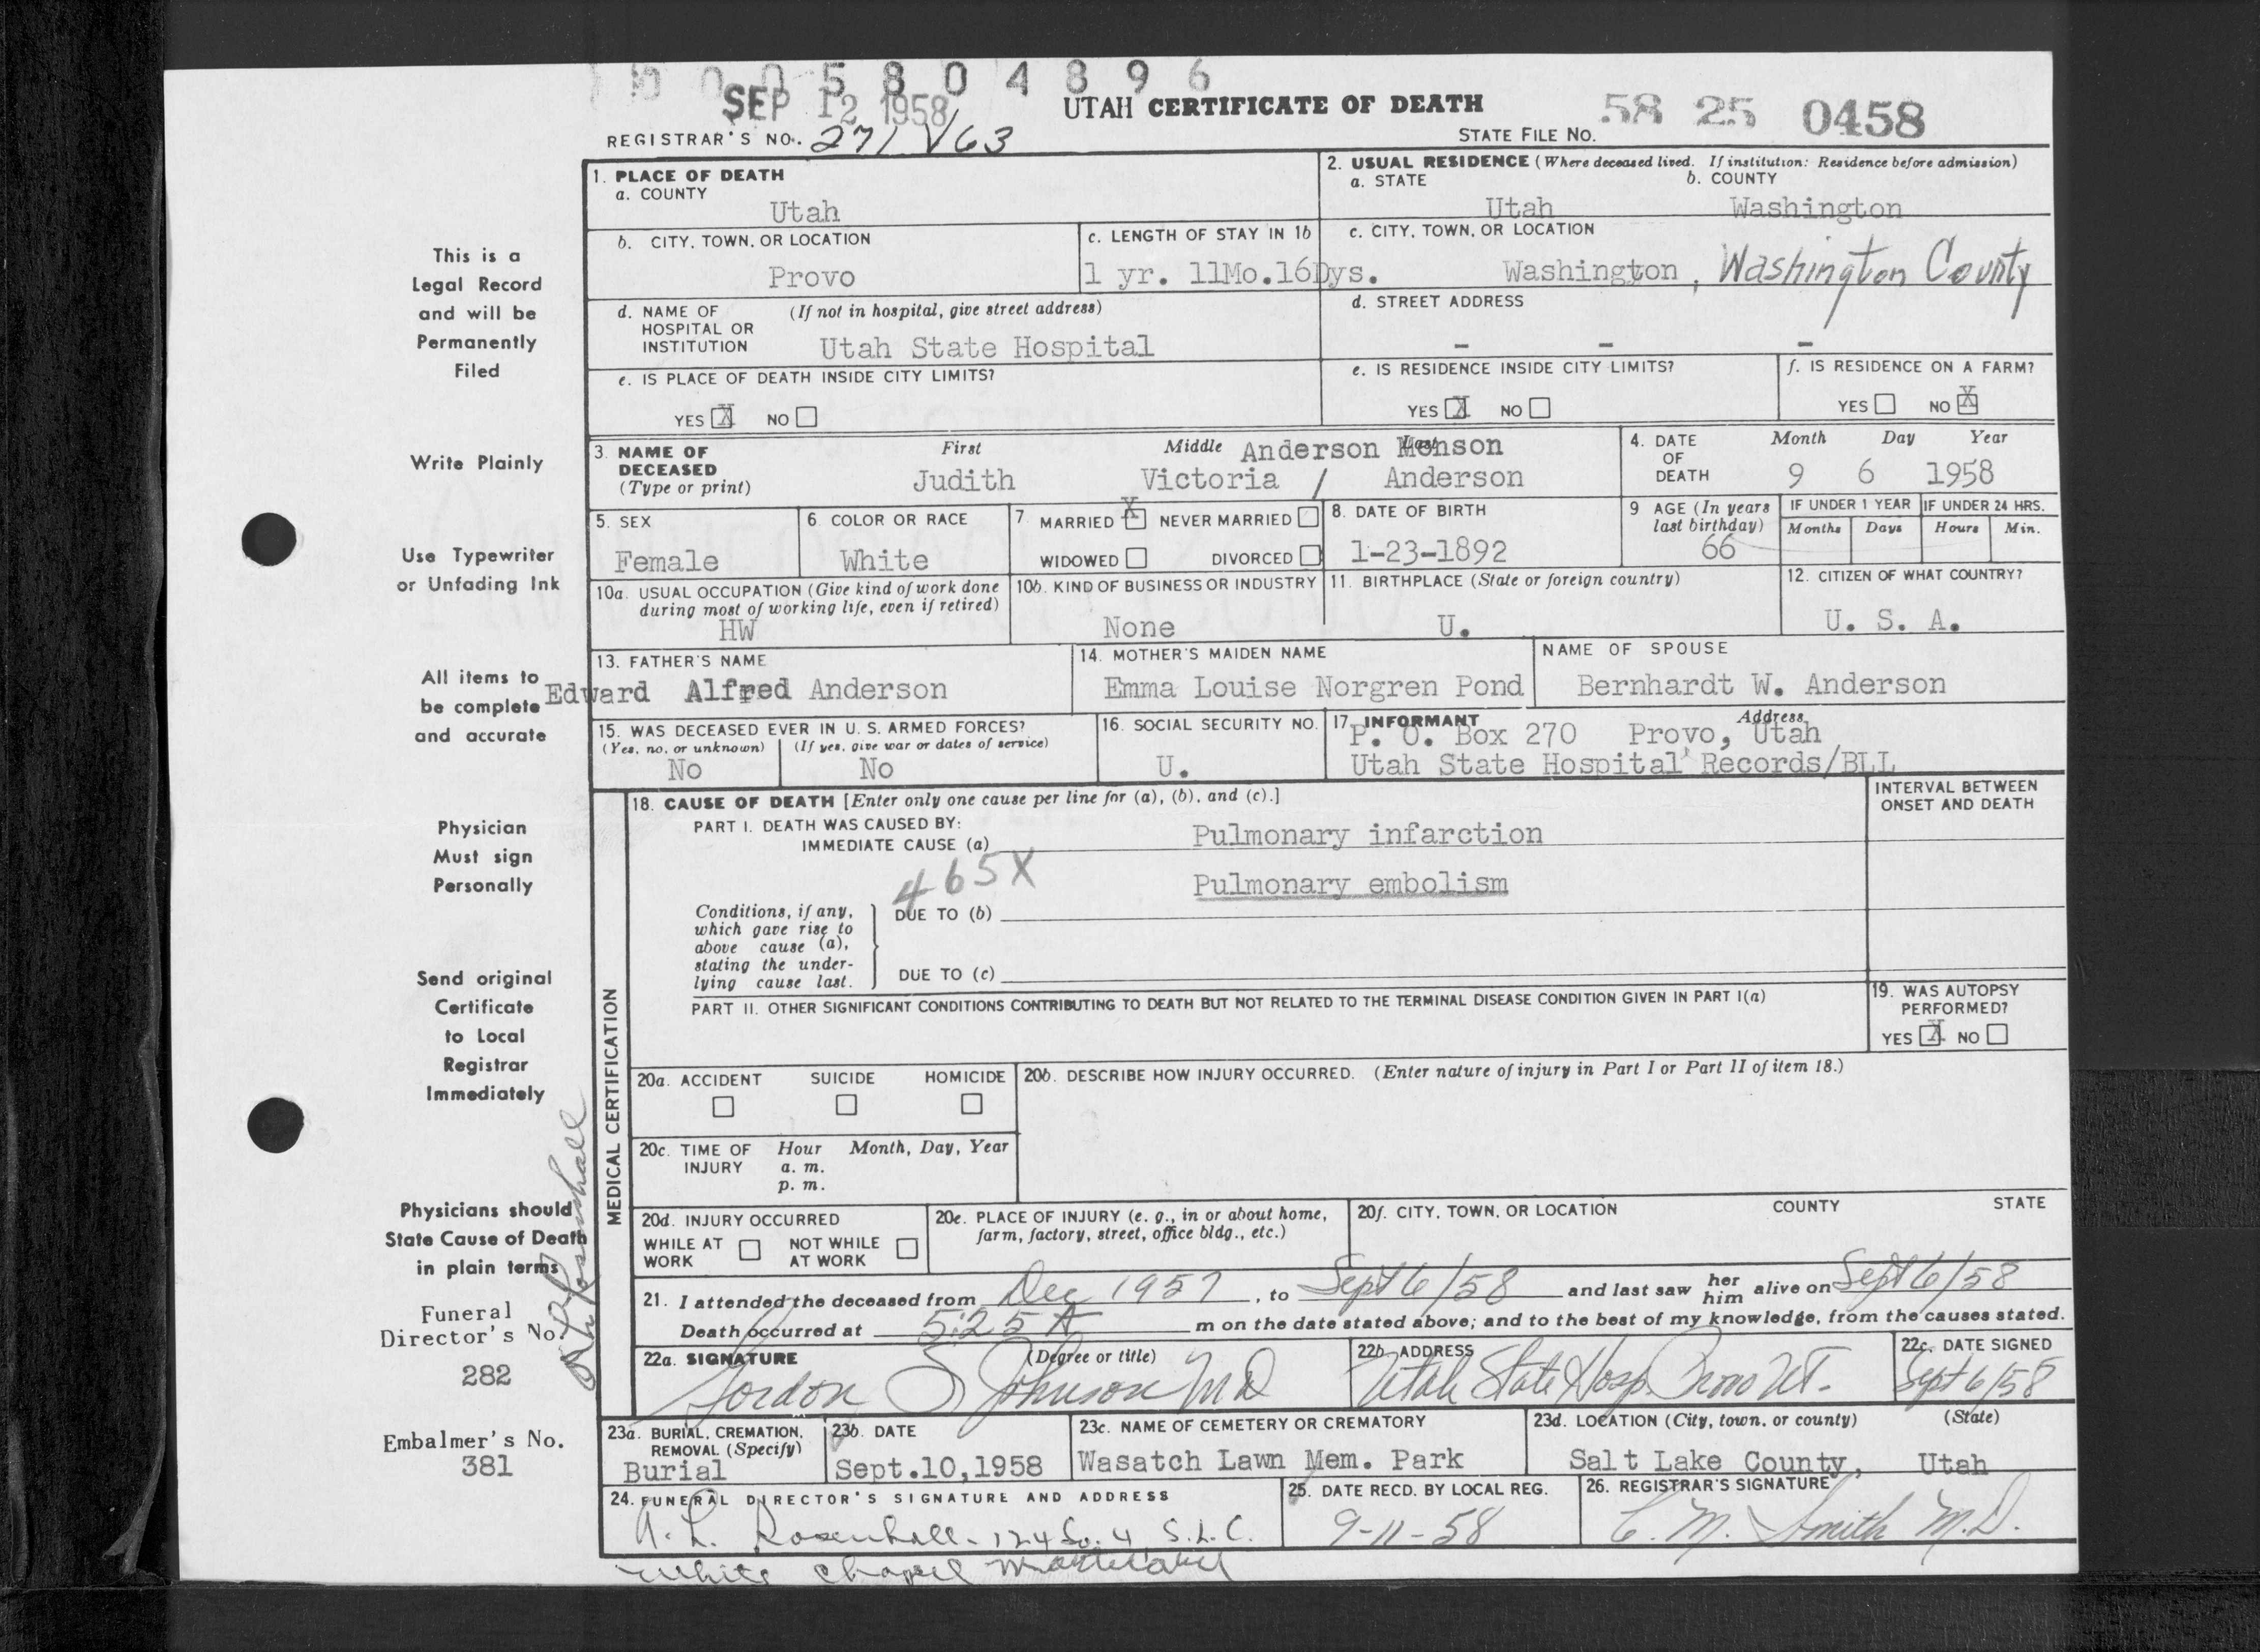 0 0 0 5 8 0 4 8 9 6
SEP 12 1958
UTAH CERTIFICATE OF DEATH
58 25 0458
REGISTRAR'S NO. 271 V63
STATE FILE NO.
1. PLACE OF DEATH
a. COUNTY
Utah
2. USUAL RESIDENCE (Where deceased lived. If institution: Residence before admission)
a. STATE b. COUNTY
Utah Washington
b. CITY, TOWN, OR LOCATION
Provo
c. LENGTH OF STAY IN 1b
1 yr. 11Mo.16Dys.
c. CITY, TOWN, OR LOCATION
Washington, Washington County
d. NAME OF (If not in hospital, give street address)
HOSPITAL OR
INSTITUTION Utah State Hospital
d. STREET ADDRESS
- - -
e. IS PLACE OF DEATH INSIDE CITY LIMITS?
YES X NO
e. IS RESIDENCE INSIDE CITY LIMITS?
YES X NO
f. IS RESIDENCE ON A FARM?
YES NO X
3. NAME OF DECEASED (Type or print)
First Middle Last
Anderson Monson
Judith Victoria / Anderson
4. DATE OF DEATH
Month Day Year
9 6 1958
5. SEX
Female
6. COLOR OR RACE
White
7. MARRIED X NEVER MARRIED
WIDOWED DIVORCED
8. DATE OF BIRTH
1-23-1892
9 AGE (In years last birthday)
66
IF UNDER 1 YEAR
Months Days
IF UNDER 24 HRS.
Hours Min.
10a. USUAL OCCUPATION (Give kind of work done
during most of working life, even if retired)
HW
10b. KIND OF BUSINESS OR INDUSTRY
None
11. BIRTHPLACE (State or foreign country)
U.
12. CITIZEN OF WHAT COUNTRY?
U. S. A.
13. FATHER'S NAME
Edward Alfred Anderson
14. MOTHER'S MAIDEN NAME
Emma Louise Norgren Pond
NAME OF SPOUSE
Bernhardt W. Anderson
15. WAS DECEASED EVER IN U. S. ARMED FORCES?
(Yes, no, or unknown) (If yes, give war or dates of service)
No No
16. SOCIAL SECURITY NO.
U.
17. INFORMANT Address
P. O. Box 270 Provo, Utah
Utah State Hospital Records/BLL
MEDICAL CERTIFICATION
18. CAUSE OF DEATH [Enter only one cause per line for (a), (b), and (c).]
INTERVAL BETWEEN
ONSET AND DEATH
PART I. DEATH WAS CAUSED BY:
IMMEDIATE CAUSE (a) Pulmonary infarction
465X
Pulmonary embolism
Conditions, if any,
which gave rise to
above cause (a),
stating the under-
lying cause last.
DUE TO (b)
DUE TO (c)
PART II. OTHER SIGNIFICANT CONDITIONS CONTRIBUTING TO DEATH BUT NOT RELATED TO THE TERMINAL DISEASE CONDITION GIVEN IN PART I(a)
19. WAS AUTOPSY
PERFORMED?
YES X NO
20a. ACCIDENT SUICIDE HOMICIDE
20b. DESCRIBE HOW INJURY OCCURRED. (Enter nature of injury in Part I or Part II of item 18.)
20c. TIME OF INJURY
Hour Month, Day, Year
a. m.
p. m.
20d. INJURY OCCURRED
WHILE AT WORK NOT WHILE AT WORK
20e. PLACE OF INJURY (e. g., in or about home,
farm, factory, street, office bldg., etc.)
20f. CITY, TOWN, OR LOCATION COUNTY STATE
21. I attended the deceased from Dec 1957, to Sept 6/58 and last saw her him alive on Sept 6/58
Death occurred at 5:25 A m on the date stated above; and to the best of my knowledge, from the causes stated.
22a. SIGNATURE (Degree or title)
Gordon S Johnson MD
22b. ADDRESS
Utah State Hosp. Provo Ut.
22c. DATE SIGNED
Sept 6/58
23a. BURIAL, CREMATION,
REMOVAL (Specify)
Burial
23b. DATE
Sept.10,1958
23c. NAME OF CEMETERY OR CREMATORY
Wasatch Lawn Mem. Park
23d. LOCATION (City, town, or county) (State)
Salt Lake County, Utah
24. FUNERAL DIRECTOR'S SIGNATURE AND ADDRESS
A. L. Rosenhall - 124 So. 4 S.L.C.
White Chapel Mortuary
25. DATE RECD. BY LOCAL REG.
9-11-58
26. REGISTRAR'S SIGNATURE
C. M. Smith M.D.
This is a
Legal Record
and will be
Permanently
Filed
Write Plainly
Use Typewriter
or Unfading Ink
All items to
be complete
and accurate
Physician
Must sign
Personally
Send original
Certificate
to Local
Registrar
Immediately
Physicians should
State Cause of Death
in plain terms
Funeral
Director's No.
282
Embalmer's No.
381